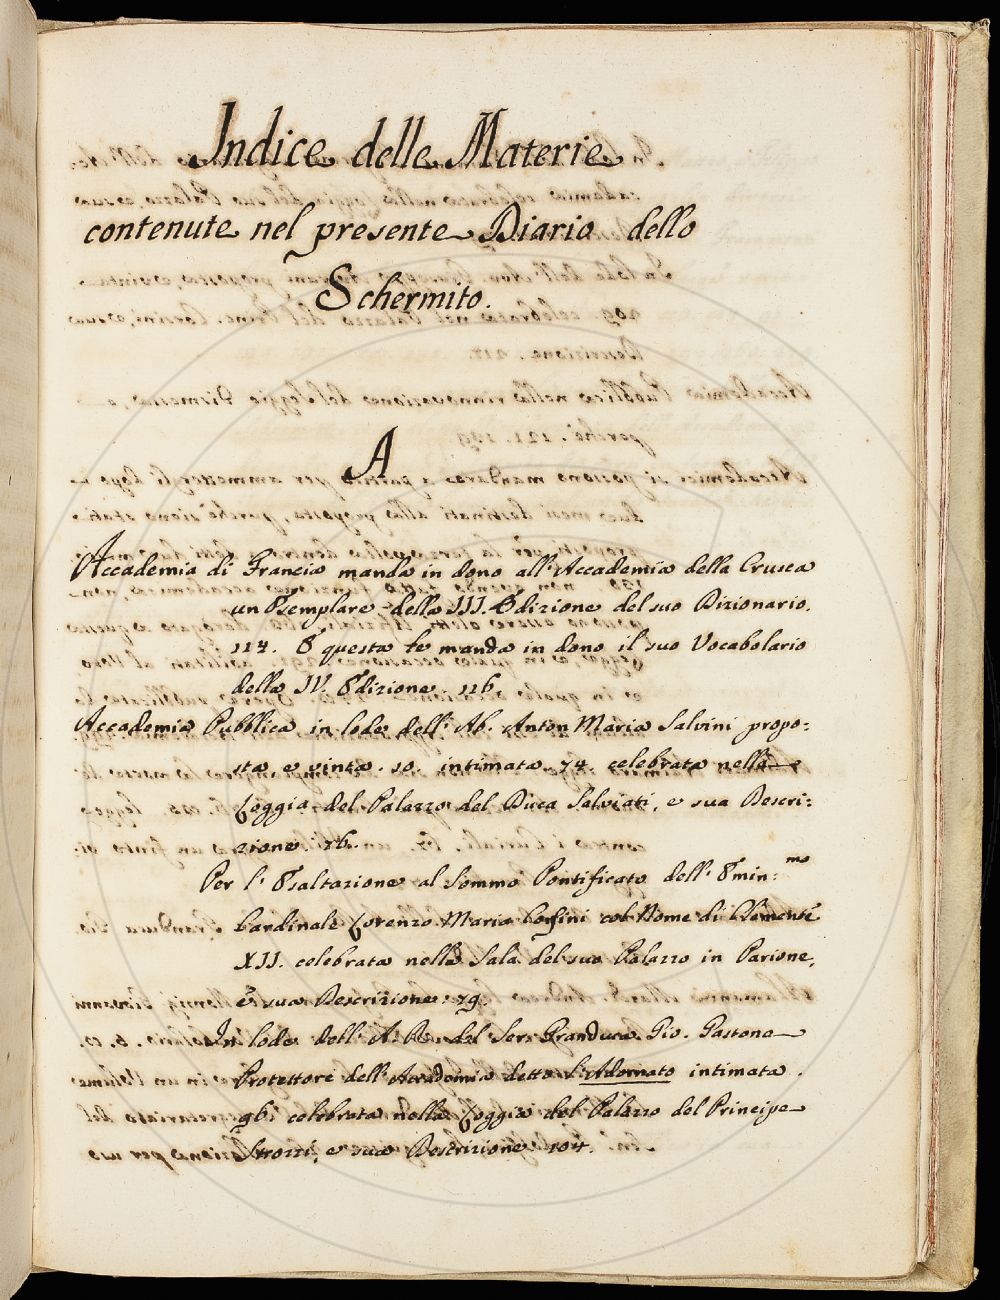 Indice delle Materie
contenute nel presente Diario dello
Schermito.
A
Accademia di Francia manda in dono all' Accademia della Crusca
un Esemplare della III. Edizione del suo Dizionario.
114. E questa le manda in dono il suo Vocabolario
della IV. Edizione. 116.
Accademia Pubblica in lode dell' Ab. Anton Maria Salvini propo:
sta e vinta. 10. intimata 74. celebrata nella
Loggia del Palazzo del Duca Salviati, e sua Descri:
zione. 76.
Per l' Esaltazione al Sommo Pontificato dell' Emin:mo
Cardinale Lorenzo Maria Corsini col Nome di Clemente
XII. celebrata nella Sala del suo Palazzo in Parione,
e sua Descrizione. 79.
In lode dell' A. R. del Ser. Granduca Gio. Gastone
Protettore dell' Accademia detto L'Adornato intimata
96. celebrata nella Loggia del Palazzo del Principe
Strozzi, e sua Descrizione 104.